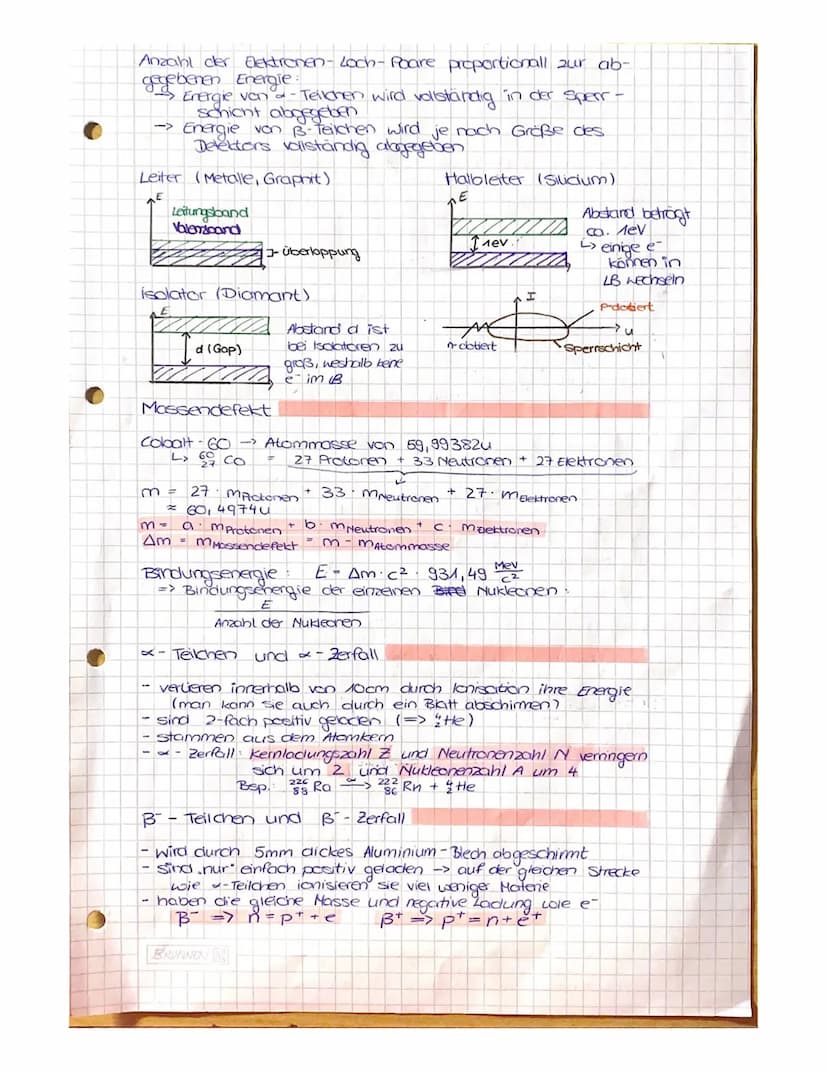 Anzahl der Elektronen-Loch-Paare proportionall zur ab-
gegebenen Energie:
→ Energie von α-Teilchen wird vollständig in der Sperr-
schicht abgegeben
→ Energie von β-Teilchen wird je nach Größe des
Detektors vollständig abgegeben
Leiter (Metalle, Graphit)
E
Leitungsband
Valenzband
}- Überlappung
Halbleiter (Silicium)
E
1eV
Abstand beträgt
ca. 1eV
↳ einige e⁻
können in
LB wechseln
Isolator (Diamant)
E
d (Gap)
Abstand d ist
bei Isolatoren zu
groß, weshalb keine
e⁻ im LB
I
p-dotiert
U
n-dotiert
Sperrschicht
Massendefekt
Cobalt-60 → Atommasse von 59,99382u
↳ ⁶⁰₂₇Co = 27 Protonen + 33 Neutronen + 27 Elektronen
m = 27 · mProtonen + 33 · mNeutronen + 27 · mElektronen
≈ 60,4974u
m = a · mProtonen + b · mNeutronen + c · mElektronen
Δm = mMassendefekt = m - mAtommasse
Bindungsenergie: E = Δm · c² · 931,49 MeV/c²
=> Bindungsenergie der einzelnen Nukleonen:
E
Anzahl der Nukleonen
α-Teilchen und α-Zerfall
- verlieren innerhalb von 10cm durch Ionisation ihre Energie
(man kann sie auch durch ein Blatt abschirmen)
- sind 2-fach positiv geladen (=> ⁴₂He)
- stammen aus dem Atomkern
- α-Zerfall: Kernladungszahl Z und Neutronenzahl N verringern
sich um 2 und Nukleonenzahl A um 4
Bsp.: ²²⁶₈₈Ra →α ²²²₈₆Rn + ⁴₂He
β⁻-Teilchen und β⁻-Zerfall
- wird durch 5mm dickes Aluminium-Blech abgeschirmt
- sind „nur" einfach positiv geladen → auf der gleichen Strecke
wie α-Teilchen ionisieren sie viel weniger Materie
- haben die gleiche Masse und negative Ladung wie e⁻
β⁻ => n = p⁺ + e β⁺ => p⁺ = n + e⁺
BRUNNEN